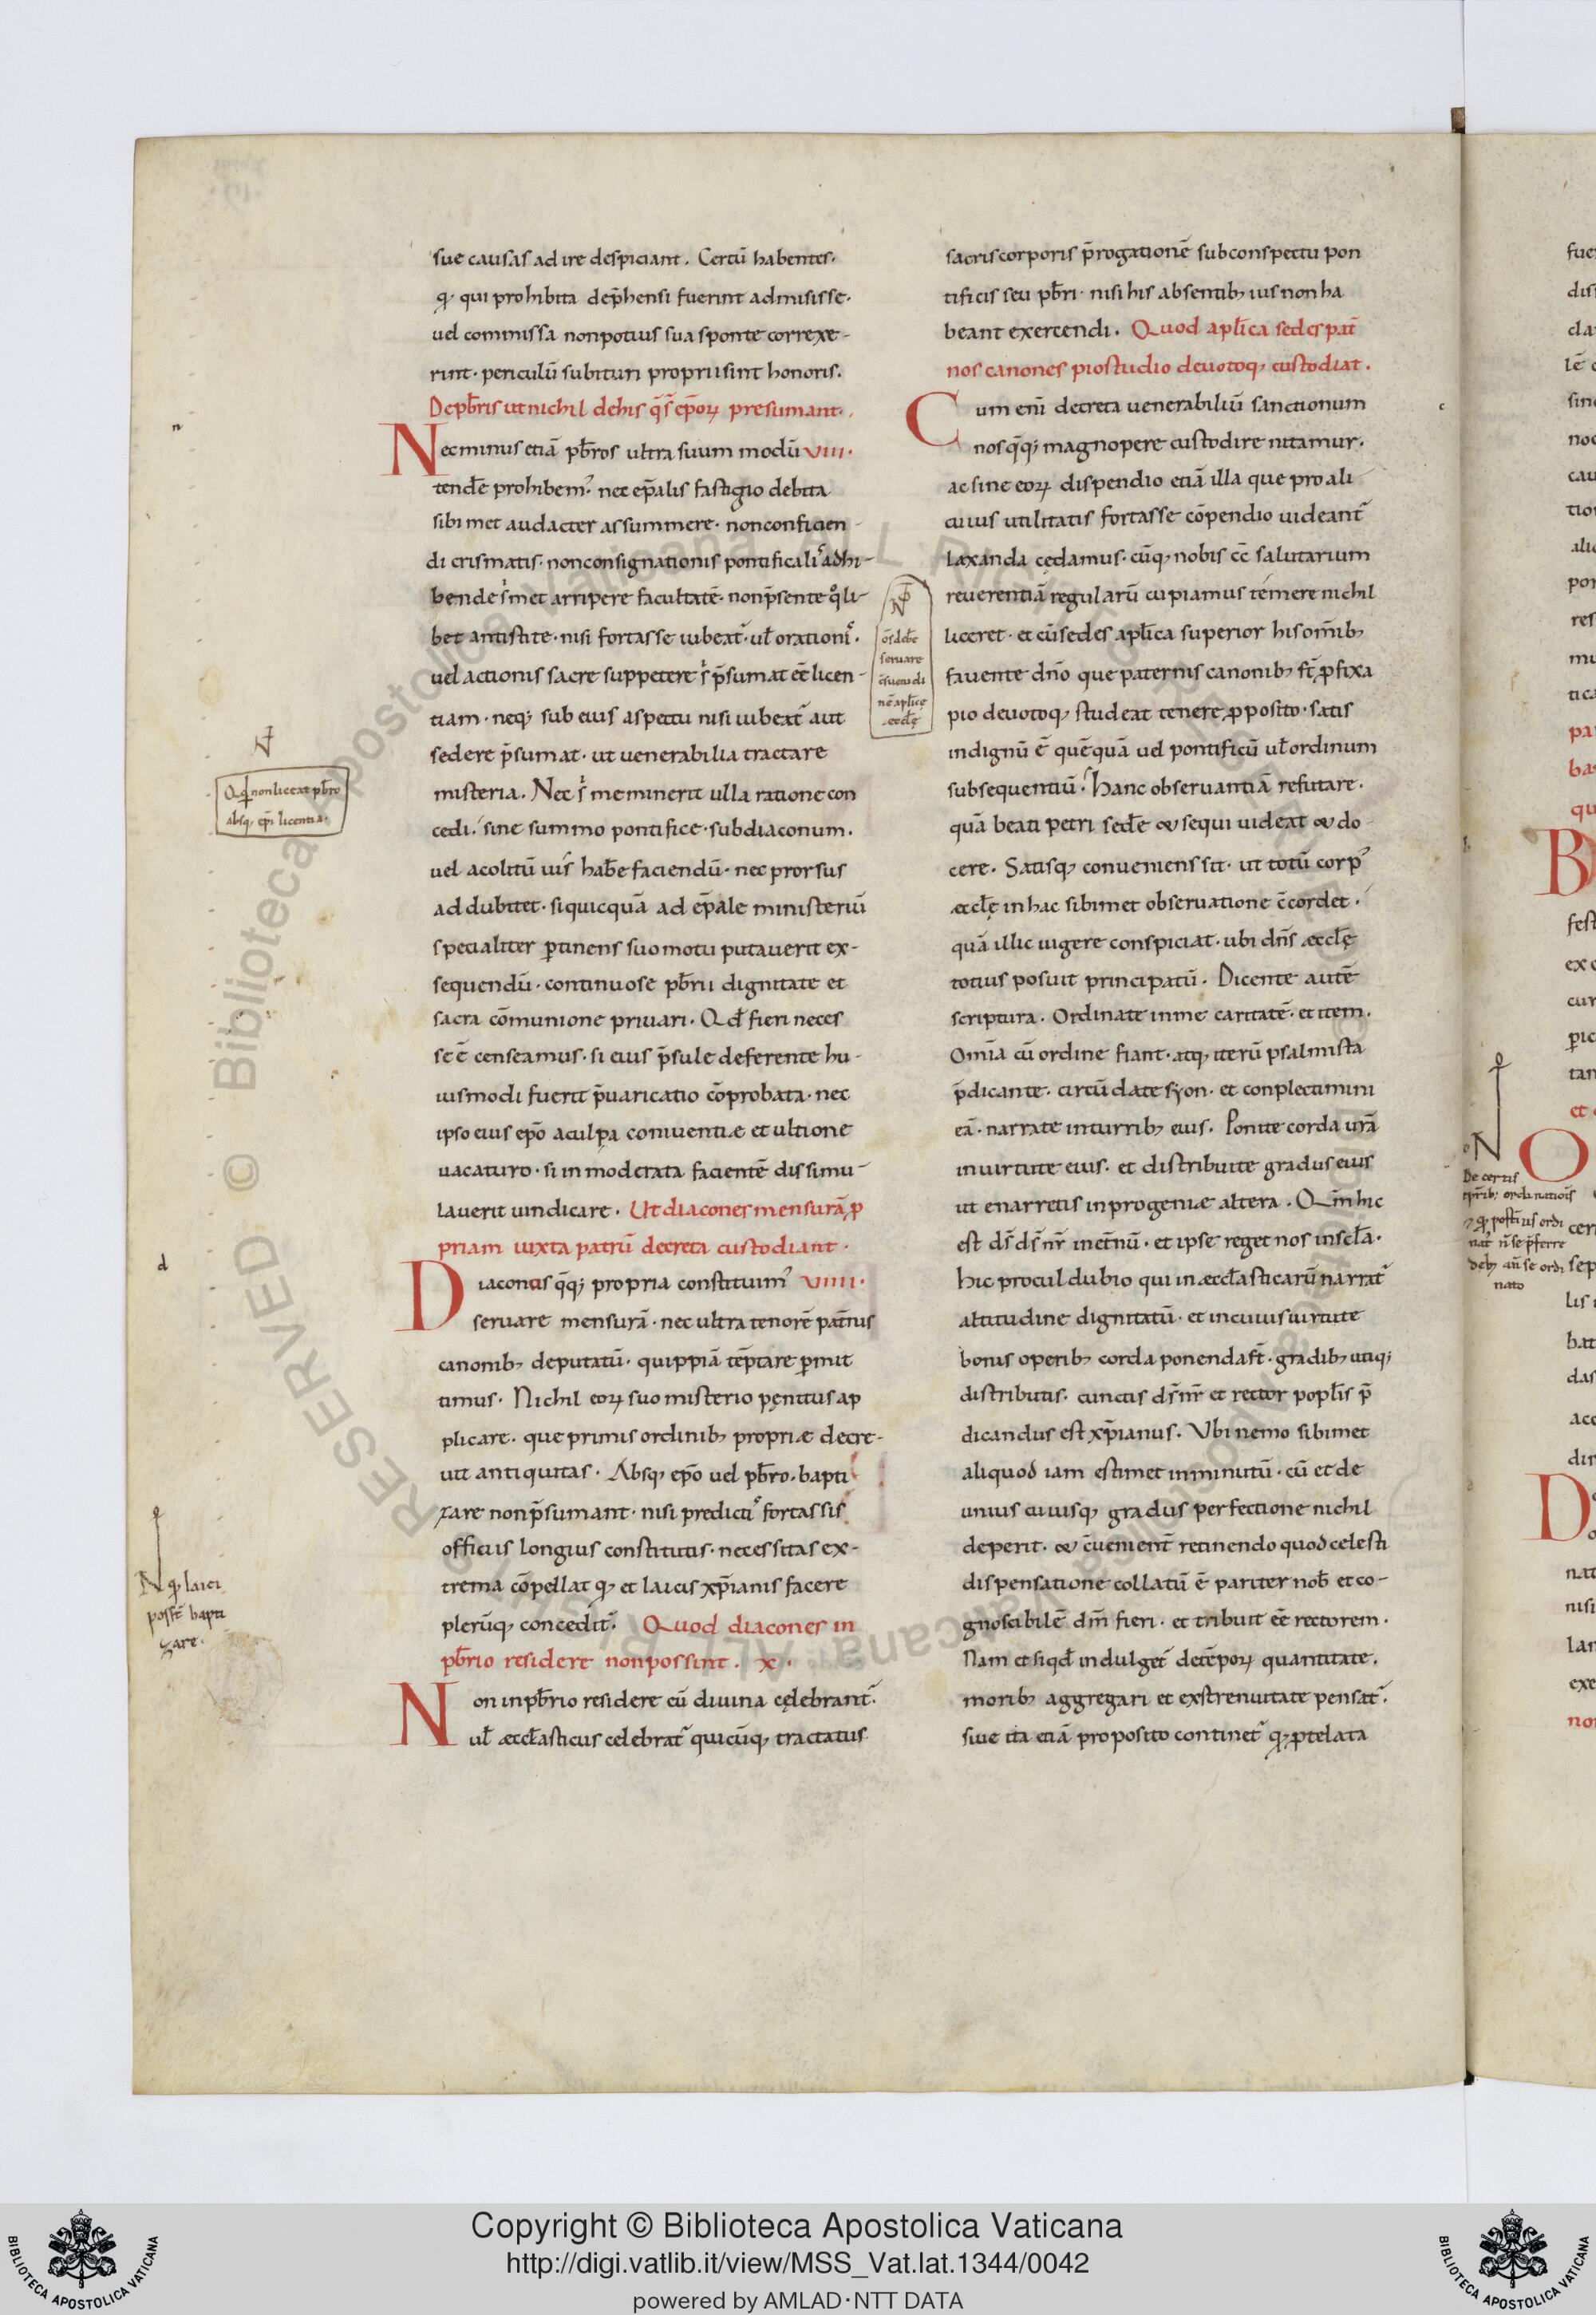 sue causas adire despiciant. Certū habentes.
qꝫ qui prohibita dep̄hensi fuerint admisisse.
uel commissa non potius sua sponte correxe-
rint. periculū subituri proprii sint honoris.
De pƀris ut nichil de his q̄ s̄ ep̄oꝝ presumant.
Nec minus etiā pƀros ultra suum modū VIII.
tend̄e prohibem᷒. nec ep̄alis fastigio debita
sibimet audacter assummere. non conficien-
di crismatis. non consignationis pontificali adhi-
bende s̓met arripere facultatē. non p̄sente q̊li-
bet antistite. nisi fortasse iubeat᷑. uł orationi.
uel actionis sacre suppetere s̓ p̄sumat eē licen-
tiam. neqꝫ sub eius aspectu nisi iubeat᷑ aut
sedere p̄sumat. ut uenerabilia tractare
misteria. Nec s̓ meminerit ulla ratione con
cedi. sine summo pontifice. subdiaconum.
uel acolitū ius hab̄e faciendū. nec prorsus
ad dubitet. si quicquā ad ep̄ale ministeriū
specialiter ꝑtinens suo motu putauerit ex-
sequendū. continuo se pƀrii dignitate et
sacra cōmunione priuari. Qđ fieri neces
se ē censeamus. si eius p̄sule deferente hu-
iusmodi fuerit p̄uaricatio cōprobata. nec
ipso eius ep̄o a culpa coniuentiæ et ultione
uacaturo. si inmoderata facientē dissimu-
lauerit uindicare. Ut diacones mensurā ꝓ
priam iuxta patrū decreta custodiant.
Diaconus q̄qꝫ propria constituim᷒ VIIII.
seruare mensurā. nec ultra tenorē pat̄nis
canonibꝫ deputatū. quippiā tēptare ꝑmit
timus. Nichil eoꝝ suo misterio pęnitus ap
plicare. que primis ordinibꝫ propriæ decre-
uit antiquitas. Absqꝫ ep̄o uel pƀro. bapti
zare non p̄sumant. nisi predicti fortassis
officiis longius constitutis. necessitas ex-
trema cōpellat qꝫ et laicis xp̄ianis facere
plerūqꝫ concedit᷑. Quod diacones in
pƀrio residere non possint. X.
Non in pƀrio residere cū diuina cęlebrant᷑.
uł æccłasticus celebrat᷑ quicūqꝫ tractatus
n
d
Qđ non liceat pƀro
absqꝫ ep̄i licentia.
N qꝫ laici
poss̄t bapti
zare.
sacris corporis p̄rogationē sub conspectu pon
tificis seu pƀri. nisi his absentibꝫ ius non ha
beant exercendi. Quod aplīca sedes pat̄
nos canones pio studio deuotoqꝫ custodiat.
Cum enī decreta uenerabiliū sanctionum
nos q̄qꝫ magnopere custodire nitamur.
ac sine eoꝝ dispendio etiā illa que pro ali
cuius utilitatis fortasse cōpendio uideant᷑
laxanda cędamus. cūqꝫ nobis cc̄ salutarium
reuerentiā regularū cupiamus temere nichil
liceret. et cū sedes aplīca superior his om̄ibꝫ
fauente dn̄o que paternis canonibꝫ st̄ ꝓfixa
pio deuotoqꝫ studeat tenere ꝓposito. satis
indignū ē quēquā uel pontificū uł ordinum
subsequentiū. hanc obseruantiā refutare.
quā beati petri sed̄e & sequi uideat & do
cere. Satisqꝫ conueniens sit. ut totū corp᷒
æccłę in hac sibimet obseruatione c̄cordet.
quā illic uigere conspiciat. ubi dn̄s æccłę
totius posuit principatū. Dicente autē
scriptura. Ordinate in me caritatē. et item.
Om̄ia cū ordine fiant. atqꝫ iterū psalmista
p̄dicante. circūdate syon. et conplectimini
eā. narrate in turribꝫ eius. Ponite corda ur̄a
in uirtute eius. et distribuite gradus eius
ut enarretis in progeniæ altera. Qm̄ hic
est ds̄ ds̄ nr̄ in et̄nū. et ipse reget nos in scl̄a.
hic procul dubio qui in æccłasticarū narrat᷑
altitudine dignitatū. et in cuius uirtute
bonis operibꝫ corda ponenda st̄. gradibꝫ utiqꝫ
distributis. cunctis ds̄ nr̄ et rector popl̄is p̄
dicandus est xp̄ianus. Vbi nemo sibimet
aliquod iam estimet inminutū. cū et de
unius cuiusqꝫ gradus perfectione nichil
deperit. & c̄uenient᷑ retinendo quod celesti
dispensatione collatū ē pariter nob̄ et co-
gnoscibilē dm̄ fieri. et tribuit eē rectorem.
Nam et siqđ indulget᷑ de tēpoꝝ quantitate.
moribꝫ aggregari et exstrenuitate pensat᷑.
siue ita etiā proposito continet᷑ qꝫ ꝓtelata
om̄s debē
seruare
c̄suetudi
nē aplīcę
æccłę
c
De certis
ordinationis
nato
Copyright © Biblioteca Apostolica Vaticana
http://digi.vatlib.it/view/MSS_Vat.lat.1344/0042
powered by AMLAD·NTT DATA
BIBLIOTECA APOSTOLICA VATICANA
BIBLIOTECA APOSTOLICA VATICANA